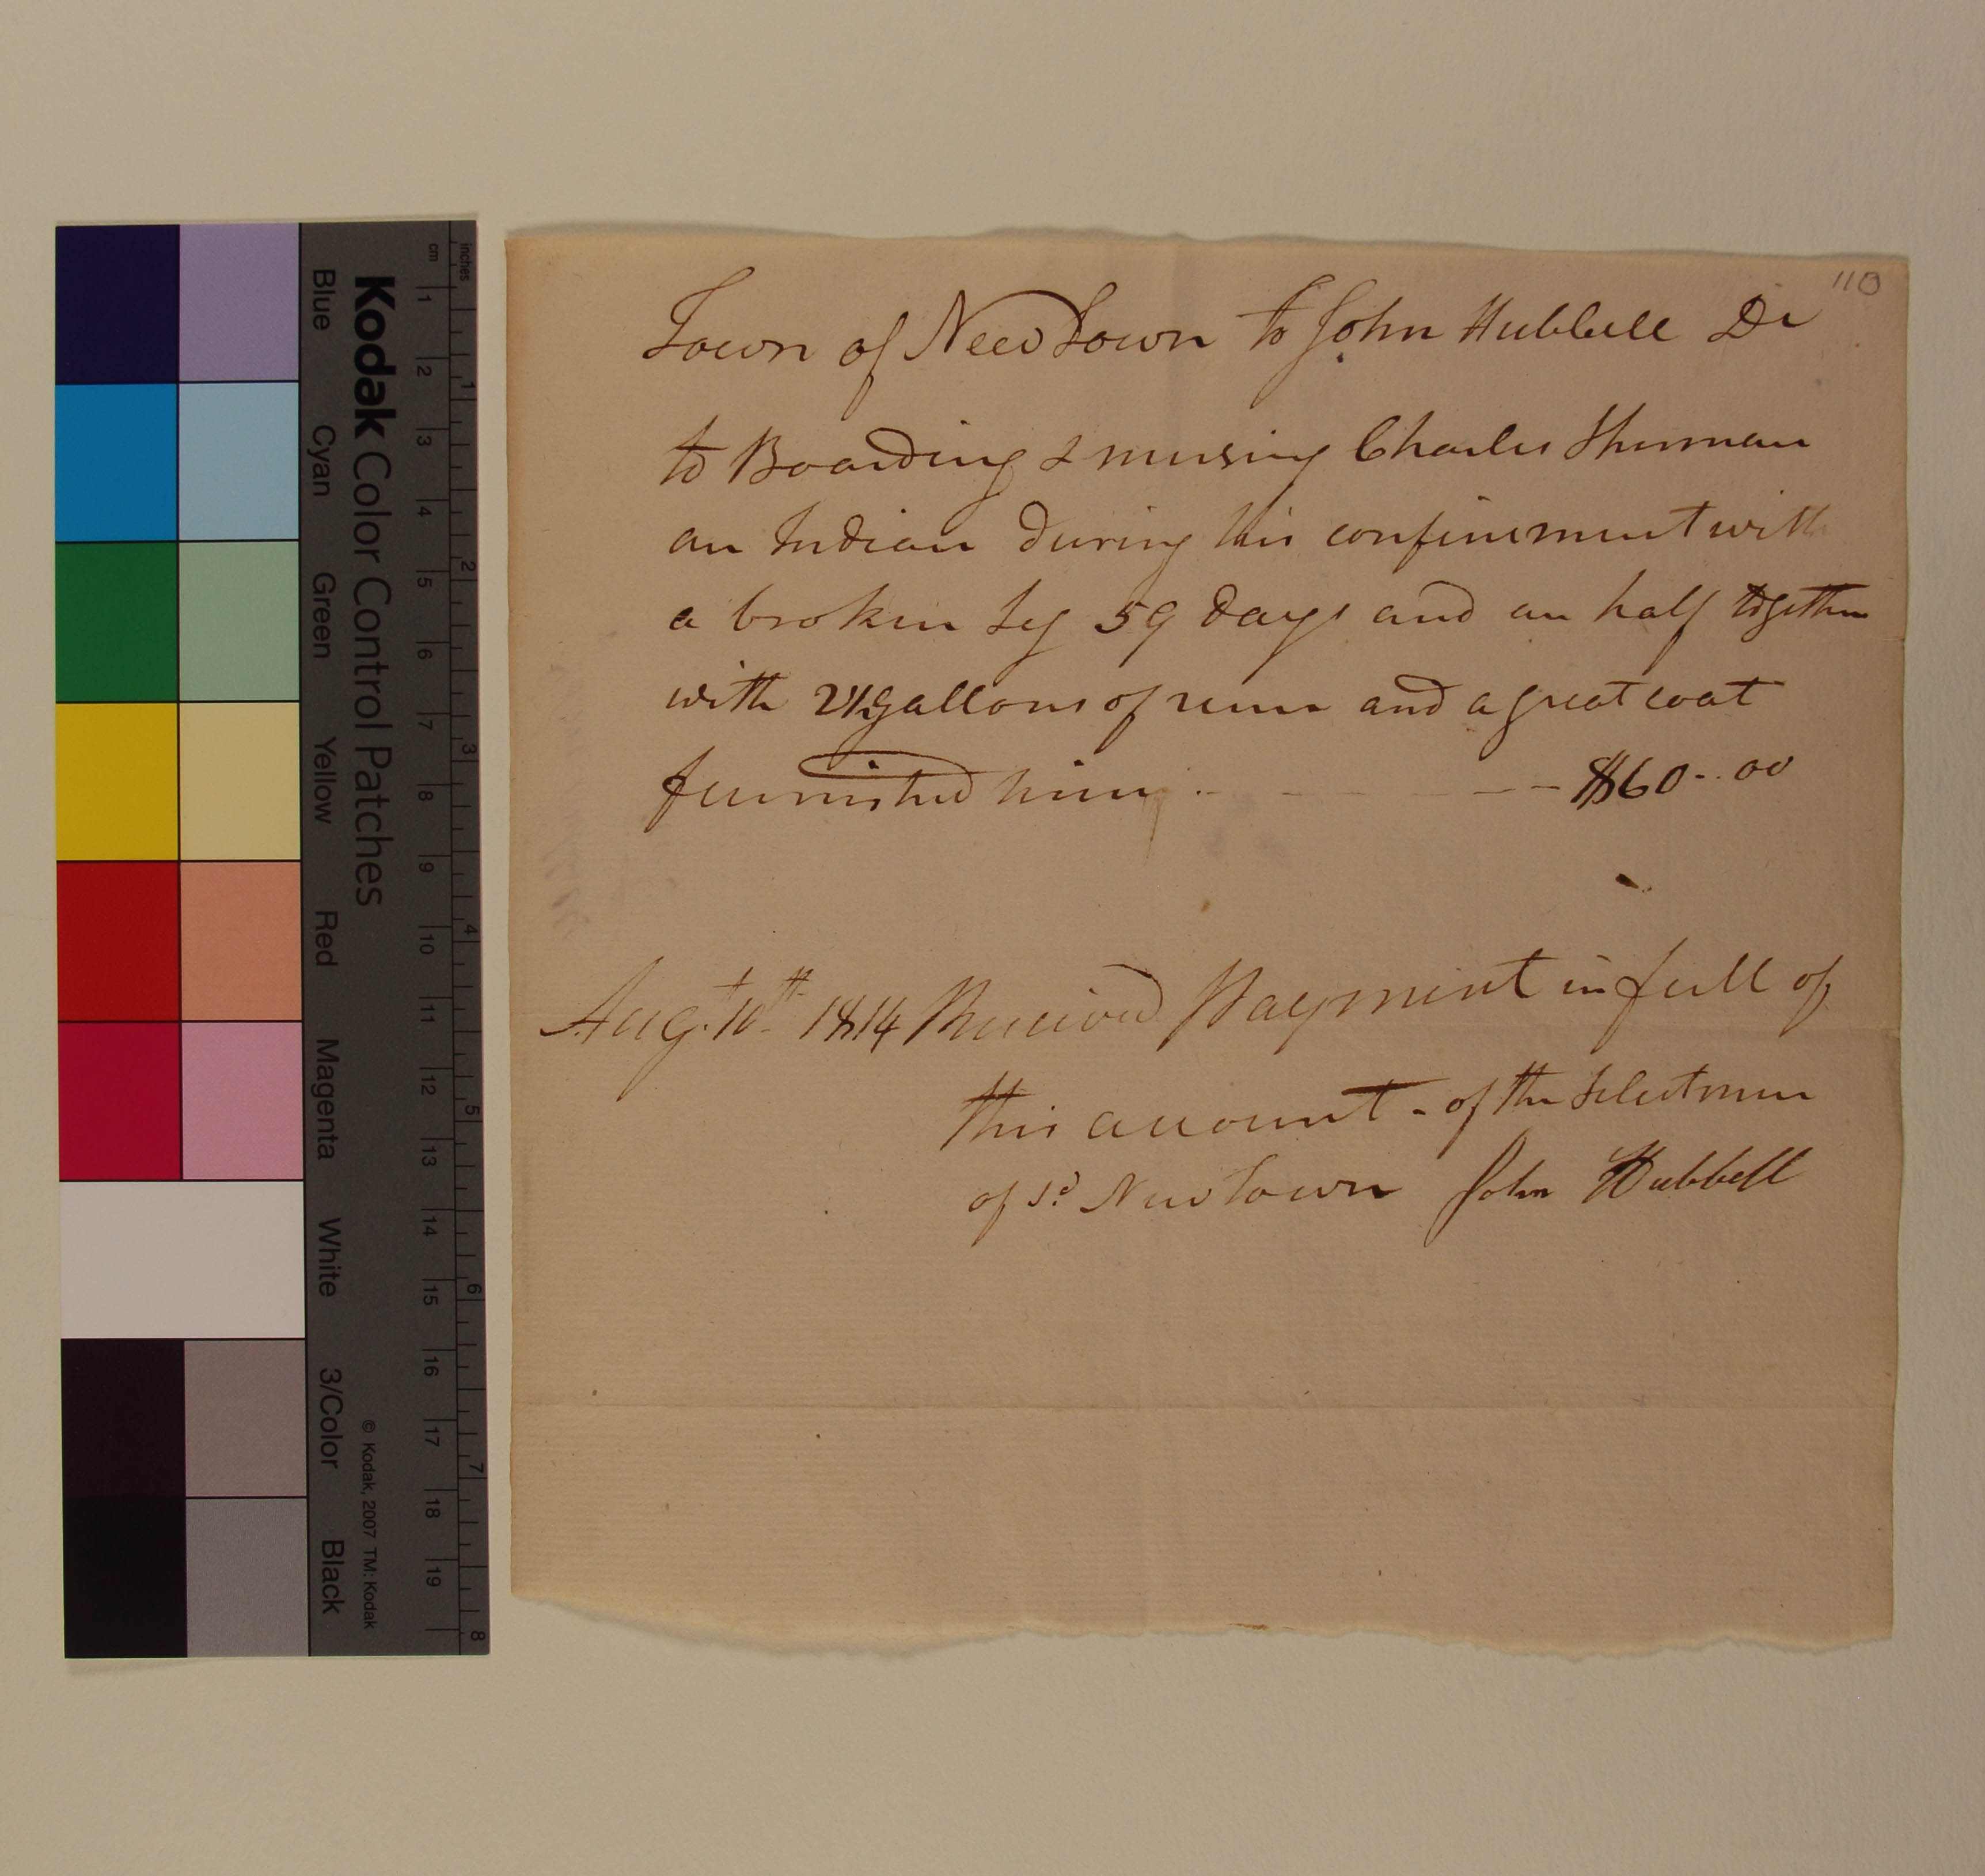 110
Town of NewTown to John Hubbell Dr
to Boarding & nursing Charles Sherman
an Indian during his confinement with
a broken Leg 59 days and an half together
with 2½ gallons of rum and a great coat
furnished him .. - - - - - $60-..00
Augt. 10th 1814 Received Payment in full of
this account - of the Selectmen
of sd NewTown John Hubbell
Kodak Color Control Patches
Blue Cyan Green Yellow Red Magenta White 3/Color Black
© Kodak, 2007 TM: Kodak
cm 1 2 3 4 5 6 7 8 9 10 11 12 13 14 15 16 17 18 19
inches 1 2 3 4 5 6 7 8